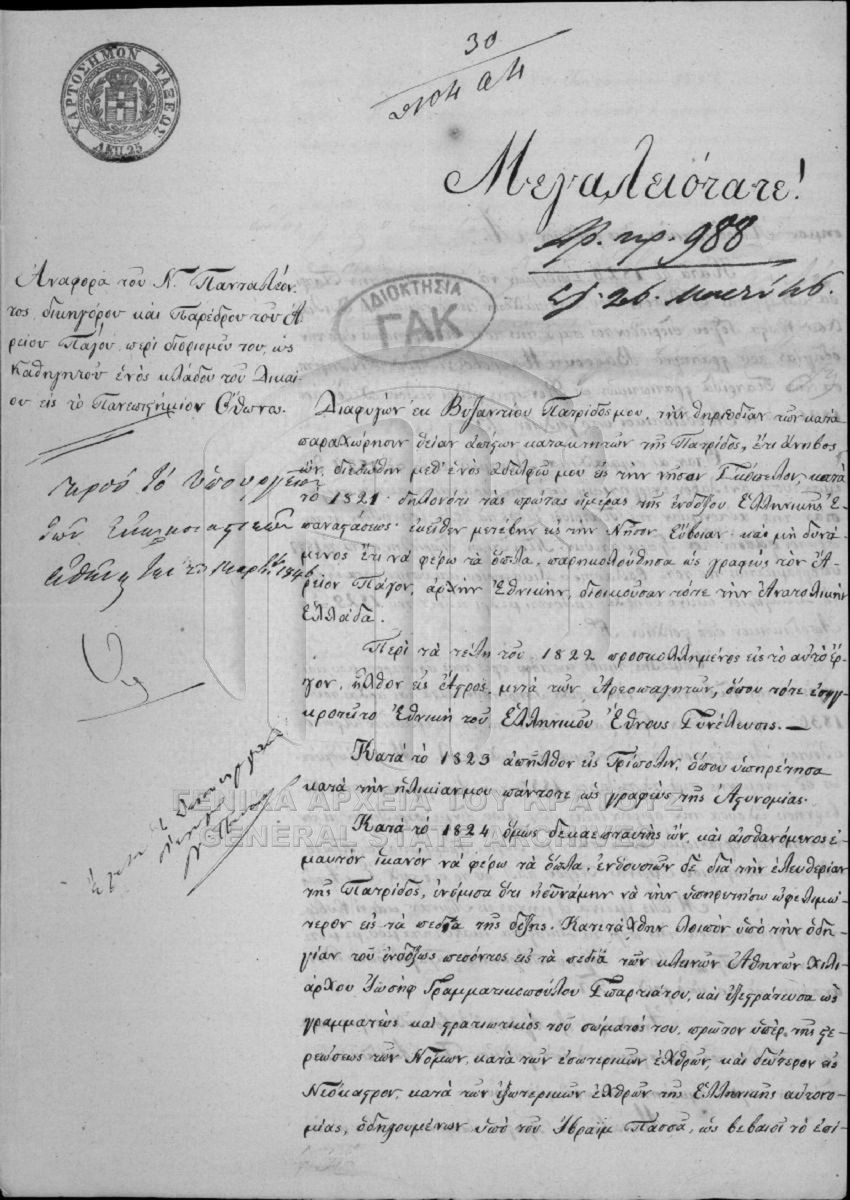 ΧΑΡΤΟΣΗΜΟΝ ΤΑΞΕΩΣ
ΛΕΠ. 25
30
Μεγαλειότατε!
Αρ. πρ. 988
26.
ΙΔΙΟΚΤΗΣΙΑ
ΓΑΚ
Ἀναφορὰ τοῦ Ν. Πανταλέον
τος, δικηγόρου καὶ Παρέδρου τοῦ Ἀ
ρείου Πάγου, περὶ διορισμοῦ του, ὡς
Καθηγητοῦ ἑνὸς κλάδου τοῦ Δικαί
ου εἰς τὸ Πανεπιστήμιον Ὄθωνος.
πρὸς τὸ Ὑπουργεῖον
τῶν Ἐκκλησιαστικῶν
Μαρτ. 1846
Διαφυγὼν ἐκ Βυζαντίου Πατρίδος μου, τὴν θηριωδίαν τῶν κατὰ
παραχώρησιν θείαν κατακτητῶν τῆς Πατρίδος, ἔτι ἄνηβος
ὢν, διεσώθην μεθ' ἑνὸς ἀδελφοῦ μου εἰς τὴν νῆσον Σκόπελον, κατὰ
τὸ 1821 δηλονότι τὰς πρώτας ἡμέρας τῆς ἐνδόξου Ἑλληνικῆς Ἐ
παναστάσεως· ἐκεῖθεν μετέβην εἰς τὴν Νῆσον Εὔβοιαν· καὶ μὴ δυνά
μενος ἔτι νὰ φέρω τὰ ὅπλα, παρηκολούθησα ὡς γραφεὺς τὸν Ἄ
ρειον Πάγον, ἀρχὴν Ἐθνικὴν, διοικοῦσαν τότε τὴν Ἀνατολικὴν
Ἑλλάδα.
Περὶ τὰ τέλη τοῦ 1822 προσκολλημένος εἰς τὸ αὐτὸ ἔρ
γον, ἦλθον εἰς Ἄστρος, μετὰ τῶν Ἀρεοπαγητῶν, ὅπου τότε ἐσυγ
κροτεῖτο Ἐθνικὴ τοῦ Ἑλληνικοῦ Ἔθνους Συνέλευσις. —
Κατὰ τὸ 1823 ἀπῆλθον εἰς Τρίπολιν, ὅπου ὑπηρέτησα
κατὰ τὴν ἡλικίαν μου πάντοτε ὡς γραφεὺς τῆς Ἀστυνομίας.
ΓΕΝΙΚΑ ΑΡΧΕΙΑ ΤΟΥ ΚΡΑΤΟΥΣ
GENERAL STATE ARCHIVES
Κατὰ τὸ 1824 ὅμως δεκαεπταετὴς ὢν, καὶ αἰσθανόμενος ἐ
μαυτὸν ἱκανὸν νὰ φέρω τὰ ὅπλα, ἐνθουσιῶν δὲ διὰ τὴν ἐλευθερίαν
τῆς Πατρίδος, ἐνόμισα ὅτι ἠδυνάμην νὰ τὴν ὑπηρετήσω ὠφελιμώ
τερον εἰς τὰ πεδία τῆς δόξης. Κατετάχθην λοιπὸν ὑπὸ τὴν ὁδη
γίαν τοῦ ἐνδόξως πεσόντος εἰς τὰ πεδία τῶν κλεινῶν Ἀθηνῶν Χιλι
άρχου Ἰωσὴφ Γραμματικοπούλου Σπαρτιάτου, καὶ ἐξεστράτευσα ὡς
γραμματεὺς καὶ στρατιωτικὸς τοῦ σώματός του, πρῶτον ὑπὲρ τῆς στε
ρεώσεως τῶν Νόμων, κατὰ τῶν ἐσωτερικῶν ἐχθρῶν, καὶ δεύτερον εἰς
Νεόκαστρον, κατὰ τῶν ἐξωτερικῶν ἐχθρῶν τῆς Ἑλληνικῆς αὐτονο
μίας, ὁδηγουμένων ὑπὸ τοῦ Ἰβραΐμ Πασσᾶ, ὡς βεβαιοῖ τὸ ἐπί